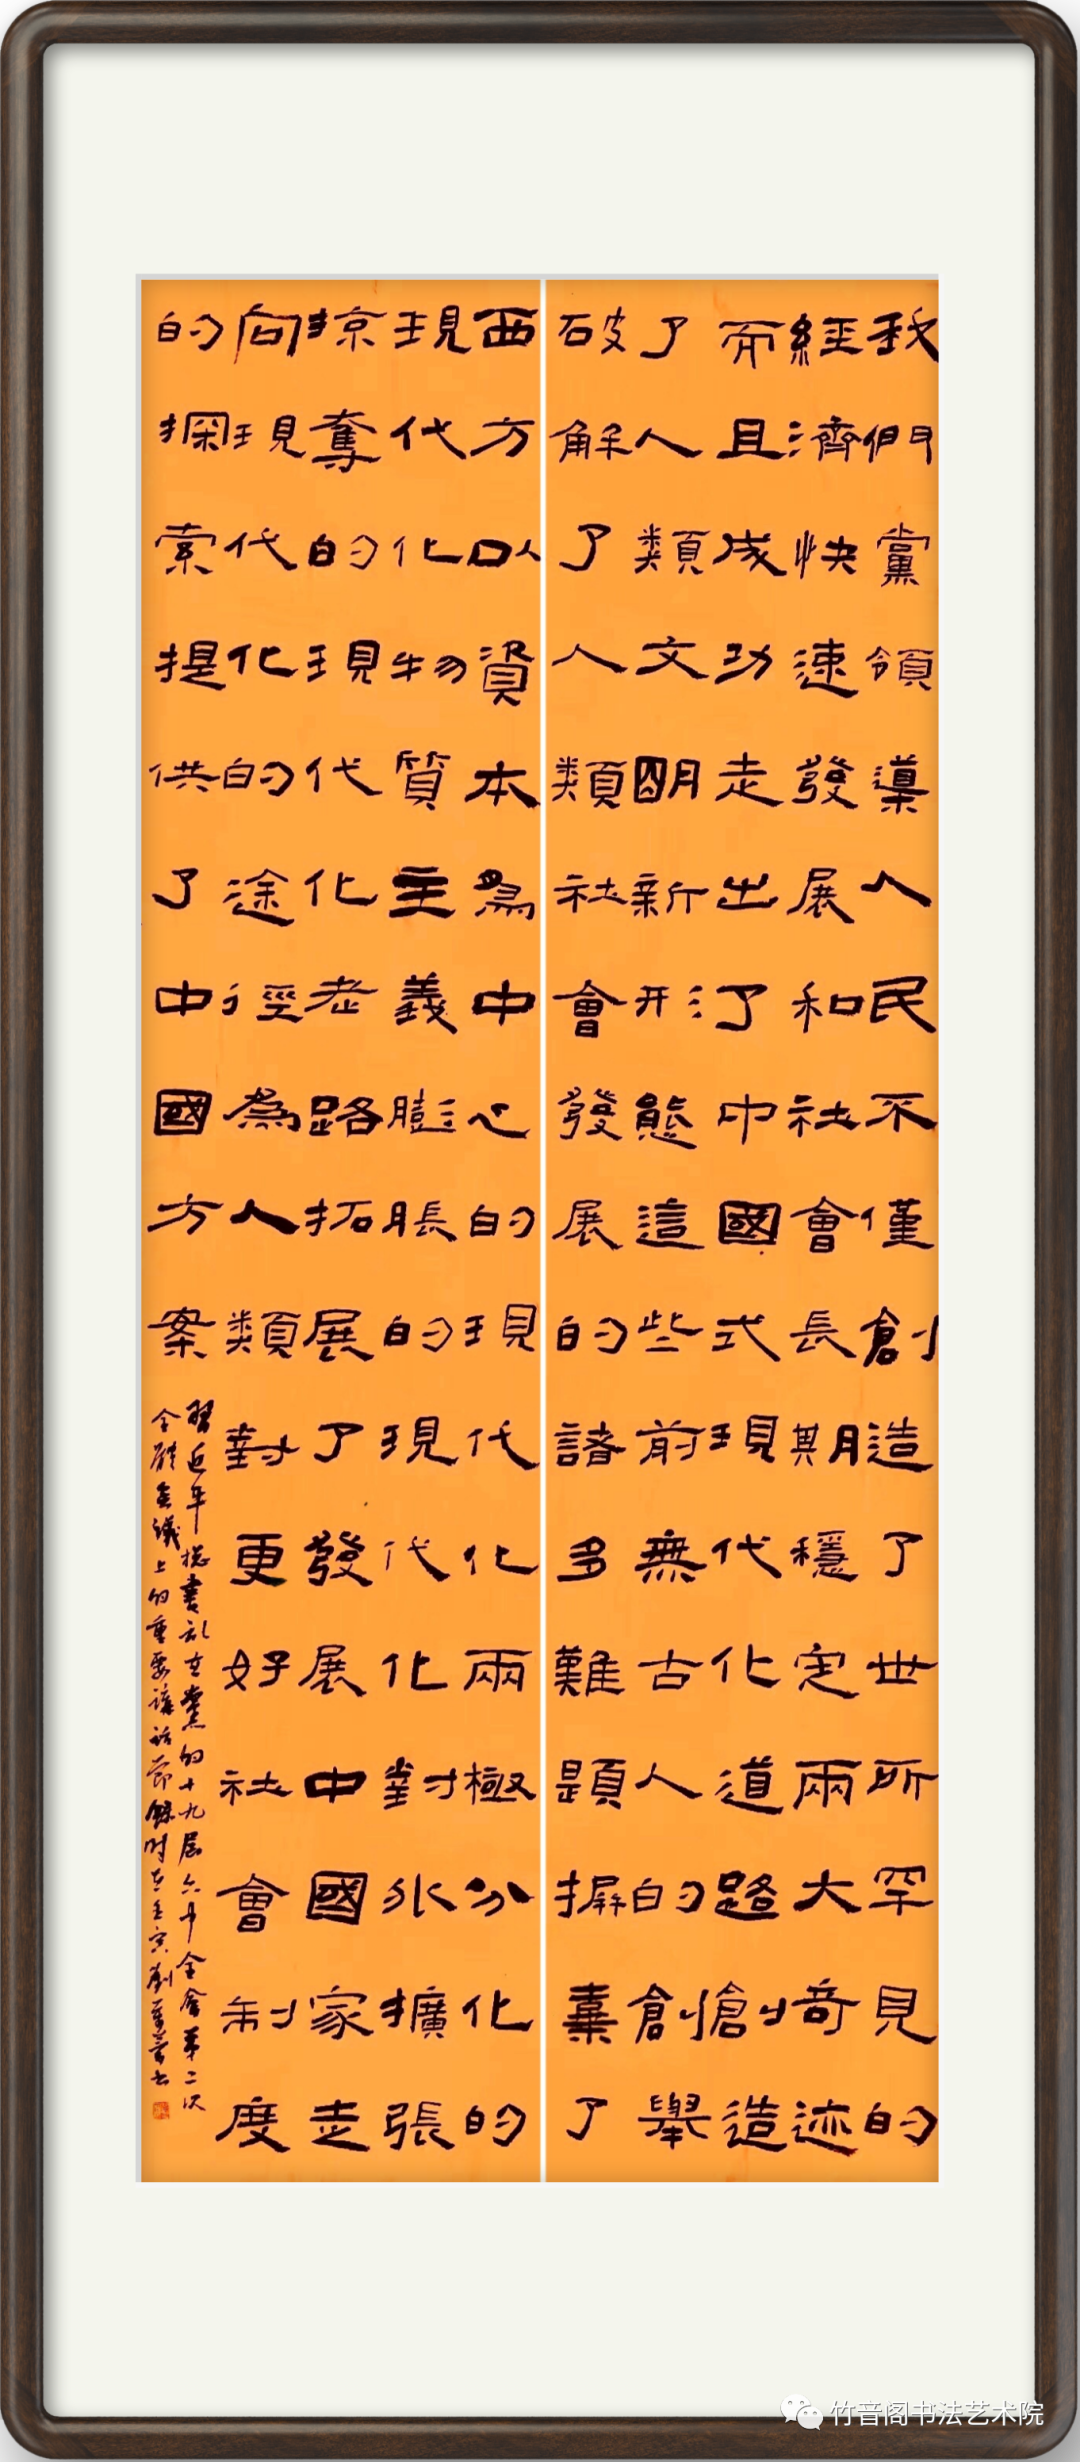 我們黨領導人民不僅創造了世所罕見的
經濟快速發展和社會長期穩定兩大奇迹
而且成功走出了中國式現代化道路創造
了人類文明新形態這些前無古人的創舉
破解了人類社會發展的諸多難題摒棄了
西方以資本為中心的現代化兩極分化的
現代化物質主義膨脹的現代化對外擴張
掠奪的現代化老路拓展了發展中國家走
向現代化的途徑為人類對更好社會制度
的探索提供了中國方案
習近平總書記在黨的十九届六中全會第二次
全體會議上的重要講話節錄時在壬寅劉書
竹音阁书法艺术院